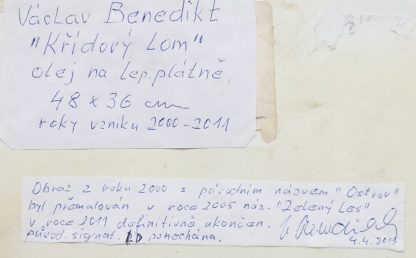 Václav Benedikt
"Křídový Lom"
olej na lep. plátně,
48 x 36 cm
roky vzniku 2000-2011
Obraz z roku 2000 s původním názvem "Ostrov"
byl přemalován v roce 2005 náz. "Zelený Les"
v roce 2011 definitivně ukončen.
původ. signat. ponechána.
V Benedikt
4.4.2011